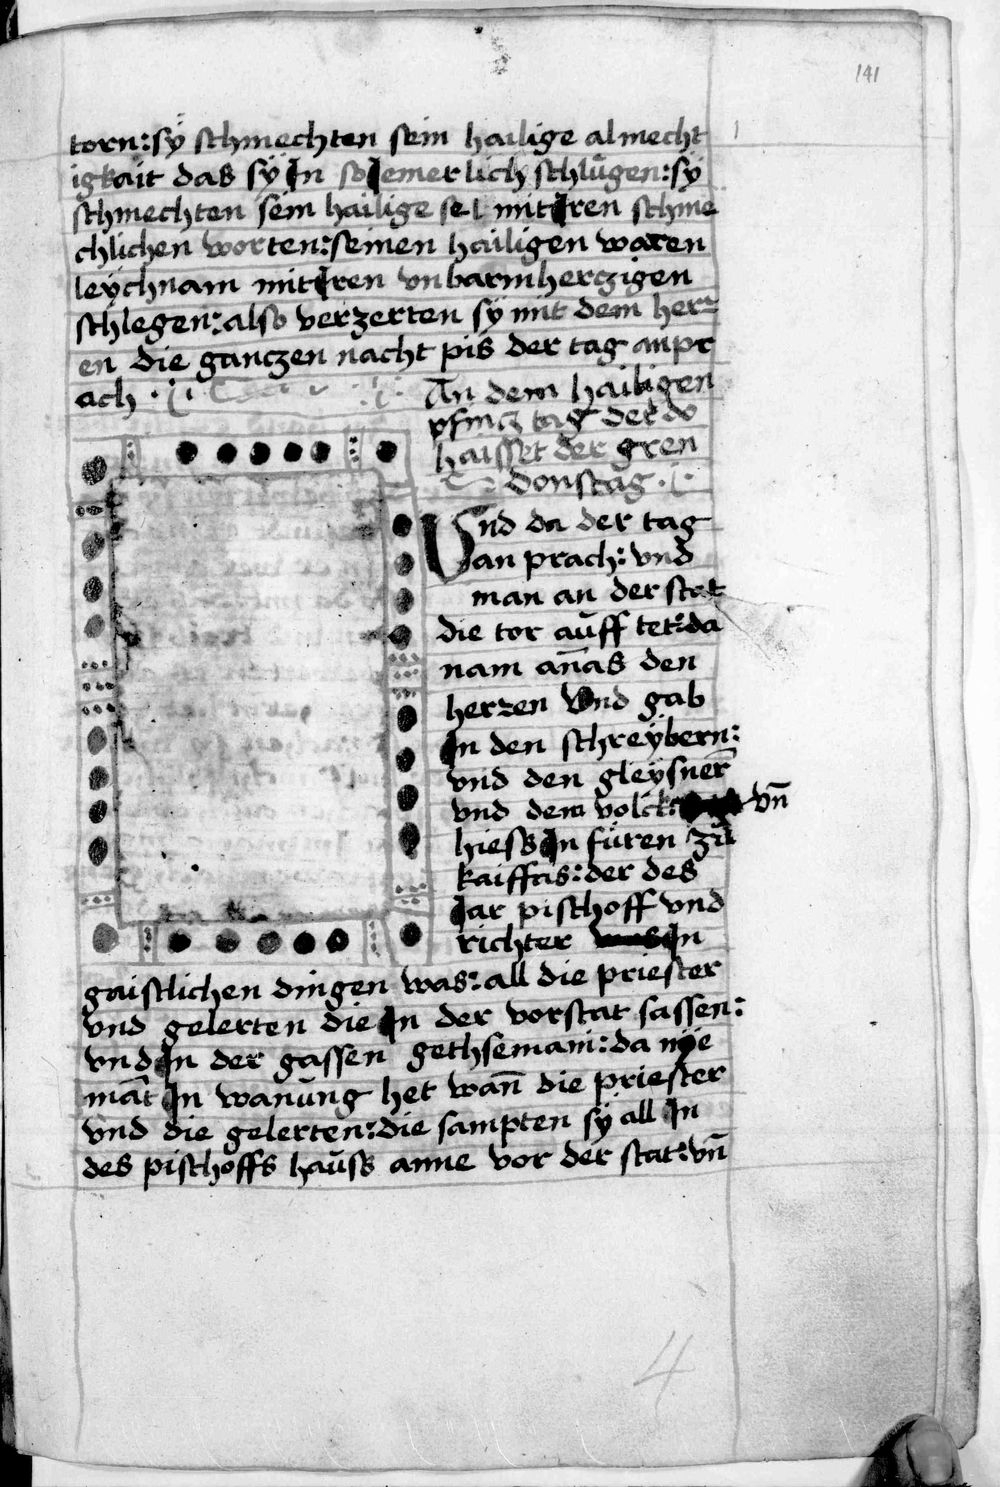 141
torn: sÿ schmechten sein hailige almecht
igkait das sÿ In so Iemerlich schlůgen: sÿ
schmechten sein hailige sel mit Iren schme
chlichen worten: seinen hailigen waren
leÿchnam mit Iren vnbarmherczigen
schlegen: also verzerten sÿ mit dem her
en die ganczen nacht pis der tag anpr
ach
An dem hailigen
pfincz tag der do
haisset der gren
donstag
Vnd da der tag
an prach: vnd
man an der stat
die tor aůff tet: da
nam an̄as den
herren Vnd gab
In den schreÿbern:
vnd den gleÿsner̄
vnd dem volck: vn̄
hiess In fůren zů
kaiffas: der des
Iar pischoff vnd
richter In
gaistlichen dingen was: all die priester
vnd gelerten die In der vorstat sassen:
vnd In der gassen gethsemani: da nÿe
māt In wanůng het wan̄ die priester
vnd die gelerten: die sampten sÿ all In
des pischoffs haůss anne vor der stat: vn̄
4